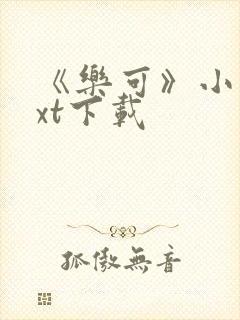 《樂可》小
xt下載
孤傲無音